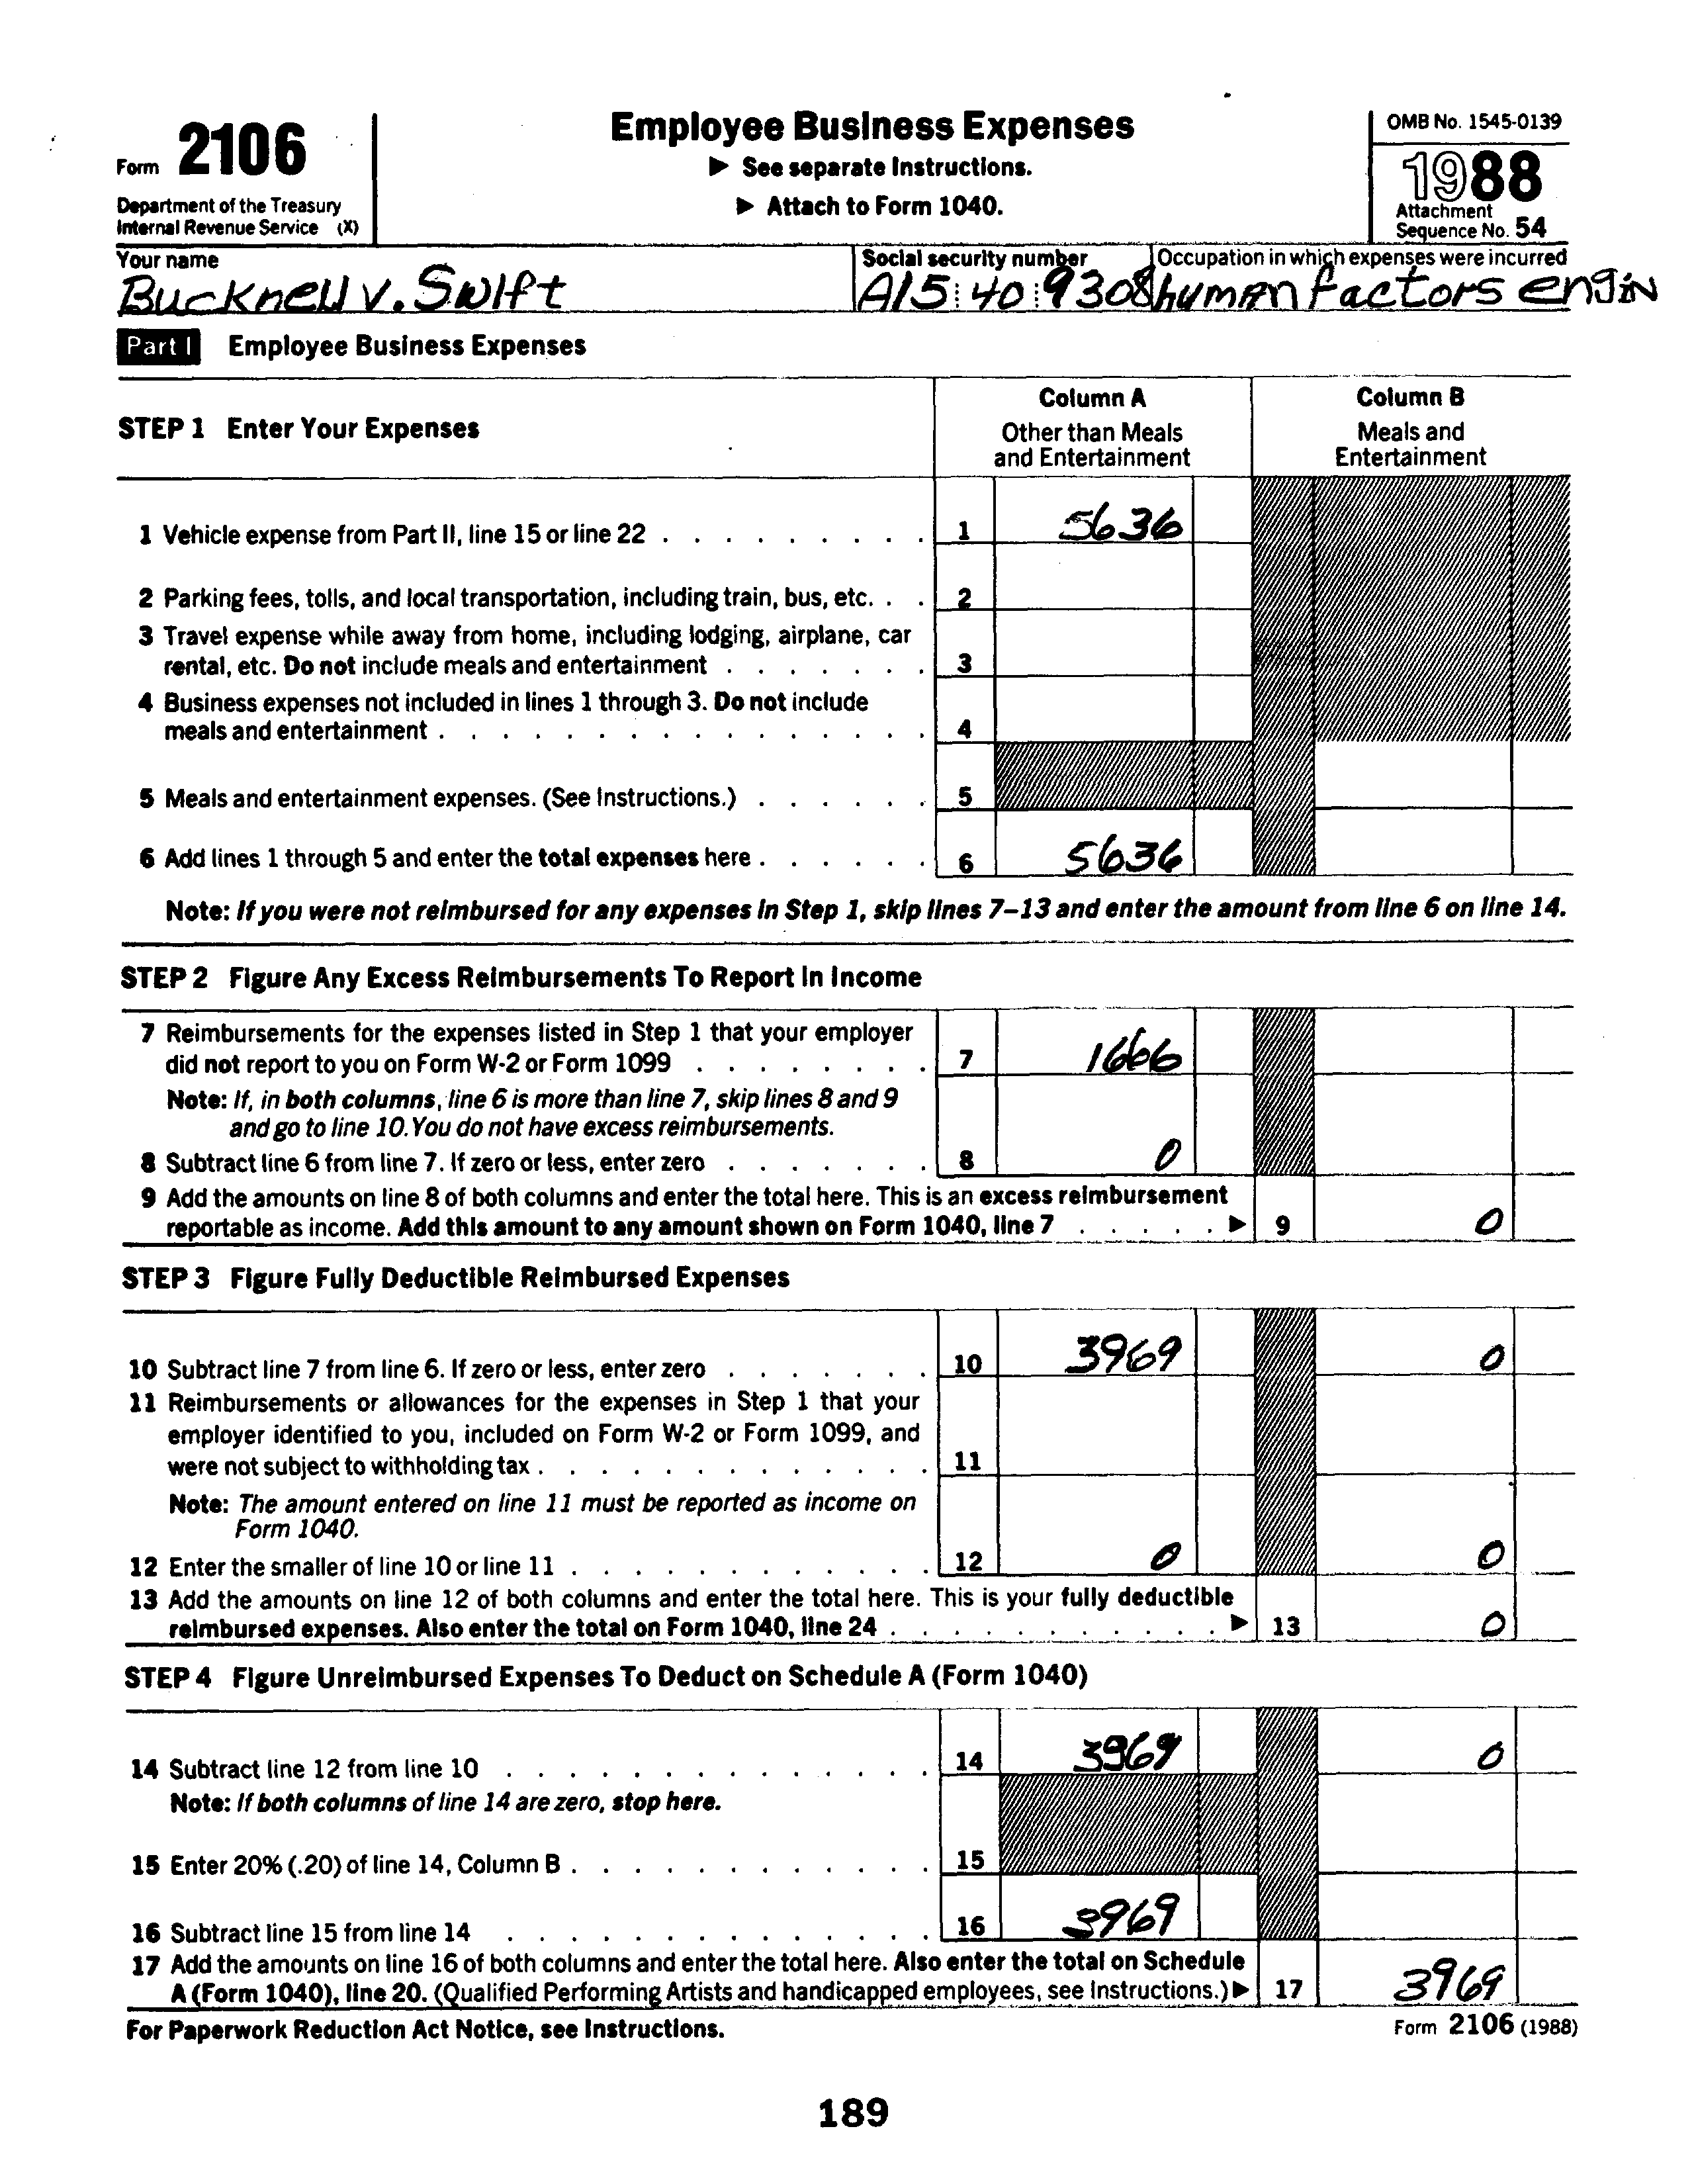 Form 2106
Department of the Treasury
Internal Revenue Service (X)
Employee Business Expenses
▶ See separate Instructions.
▶ Attach to Form 1040.
OMB No. 1545-0139
1988
Attachment
Sequence No. 54
Your name
Bucknell V. Swift
Social security number
A15 40 9308
Occupation in which expenses were incurred
human factors engin
Part I Employee Business Expenses
STEP 1 Enter Your Expenses
Column A
Other than Meals
and Entertainment
Column B
Meals and
Entertainment
1 Vehicle expense from Part II, line 15 or line 22 . . . . . . . . . 1 5636
2 Parking fees, tolls, and local transportation, including train, bus, etc. . . 2
3 Travel expense while away from home, including lodging, airplane, car
rental, etc. Do not include meals and entertainment . . . . . . . 3
4 Business expenses not included in lines 1 through 3. Do not include
meals and entertainment . . . . . . . . . . . . . . . . 4
5 Meals and entertainment expenses. (See Instructions.) . . . . . . 5
6 Add lines 1 through 5 and enter the total expenses here . . . . . . 6 5636
Note: If you were not reimbursed for any expenses in Step 1, skip lines 7–13 and enter the amount from line 6 on line 14.
STEP 2 Figure Any Excess Reimbursements To Report In Income
7 Reimbursements for the expenses listed in Step 1 that your employer
did not report to you on Form W-2 or Form 1099 . . . . . . . . 7 1666
Note: If, in both columns, line 6 is more than line 7, skip lines 8 and 9
and go to line 10. You do not have excess reimbursements.
8 Subtract line 6 from line 7. If zero or less, enter zero . . . . . . . 8 0
9 Add the amounts on line 8 of both columns and enter the total here. This is an excess reimbursement
reportable as income. Add this amount to any amount shown on Form 1040, line 7 . . . . . ▶ 9 0
STEP 3 Figure Fully Deductible Reimbursed Expenses
10 Subtract line 7 from line 6. If zero or less, enter zero . . . . . . . 10 3969 0
11 Reimbursements or allowances for the expenses in Step 1 that your
employer identified to you, included on Form W-2 or Form 1099, and
were not subject to withholding tax . . . . . . . . . . . . . 11
Note: The amount entered on line 11 must be reported as income on
Form 1040.
12 Enter the smaller of line 10 or line 11 . . . . . . . . . . . . 12 0 0
13 Add the amounts on line 12 of both columns and enter the total here. This is your fully deductible
reimbursed expenses. Also enter the total on Form 1040, line 24 . . . . . . . . . . . ▶ 13 0
STEP 4 Figure Unreimbursed Expenses To Deduct on Schedule A (Form 1040)
14 Subtract line 12 from line 10 . . . . . . . . . . . . . . 14 3969 0
Note: If both columns of line 14 are zero, stop here.
15 Enter 20% (.20) of line 14, Column B . . . . . . . . . . . . 15
16 Subtract line 15 from line 14 . . . . . . . . . . . . . . 16 3969
17 Add the amounts on line 16 of both columns and enter the total here. Also enter the total on Schedule
A (Form 1040), line 20. (Qualified Performing Artists and handicapped employees, see Instructions.) ▶ 17 3969
For Paperwork Reduction Act Notice, see Instructions.
Form 2106 (1988)
189